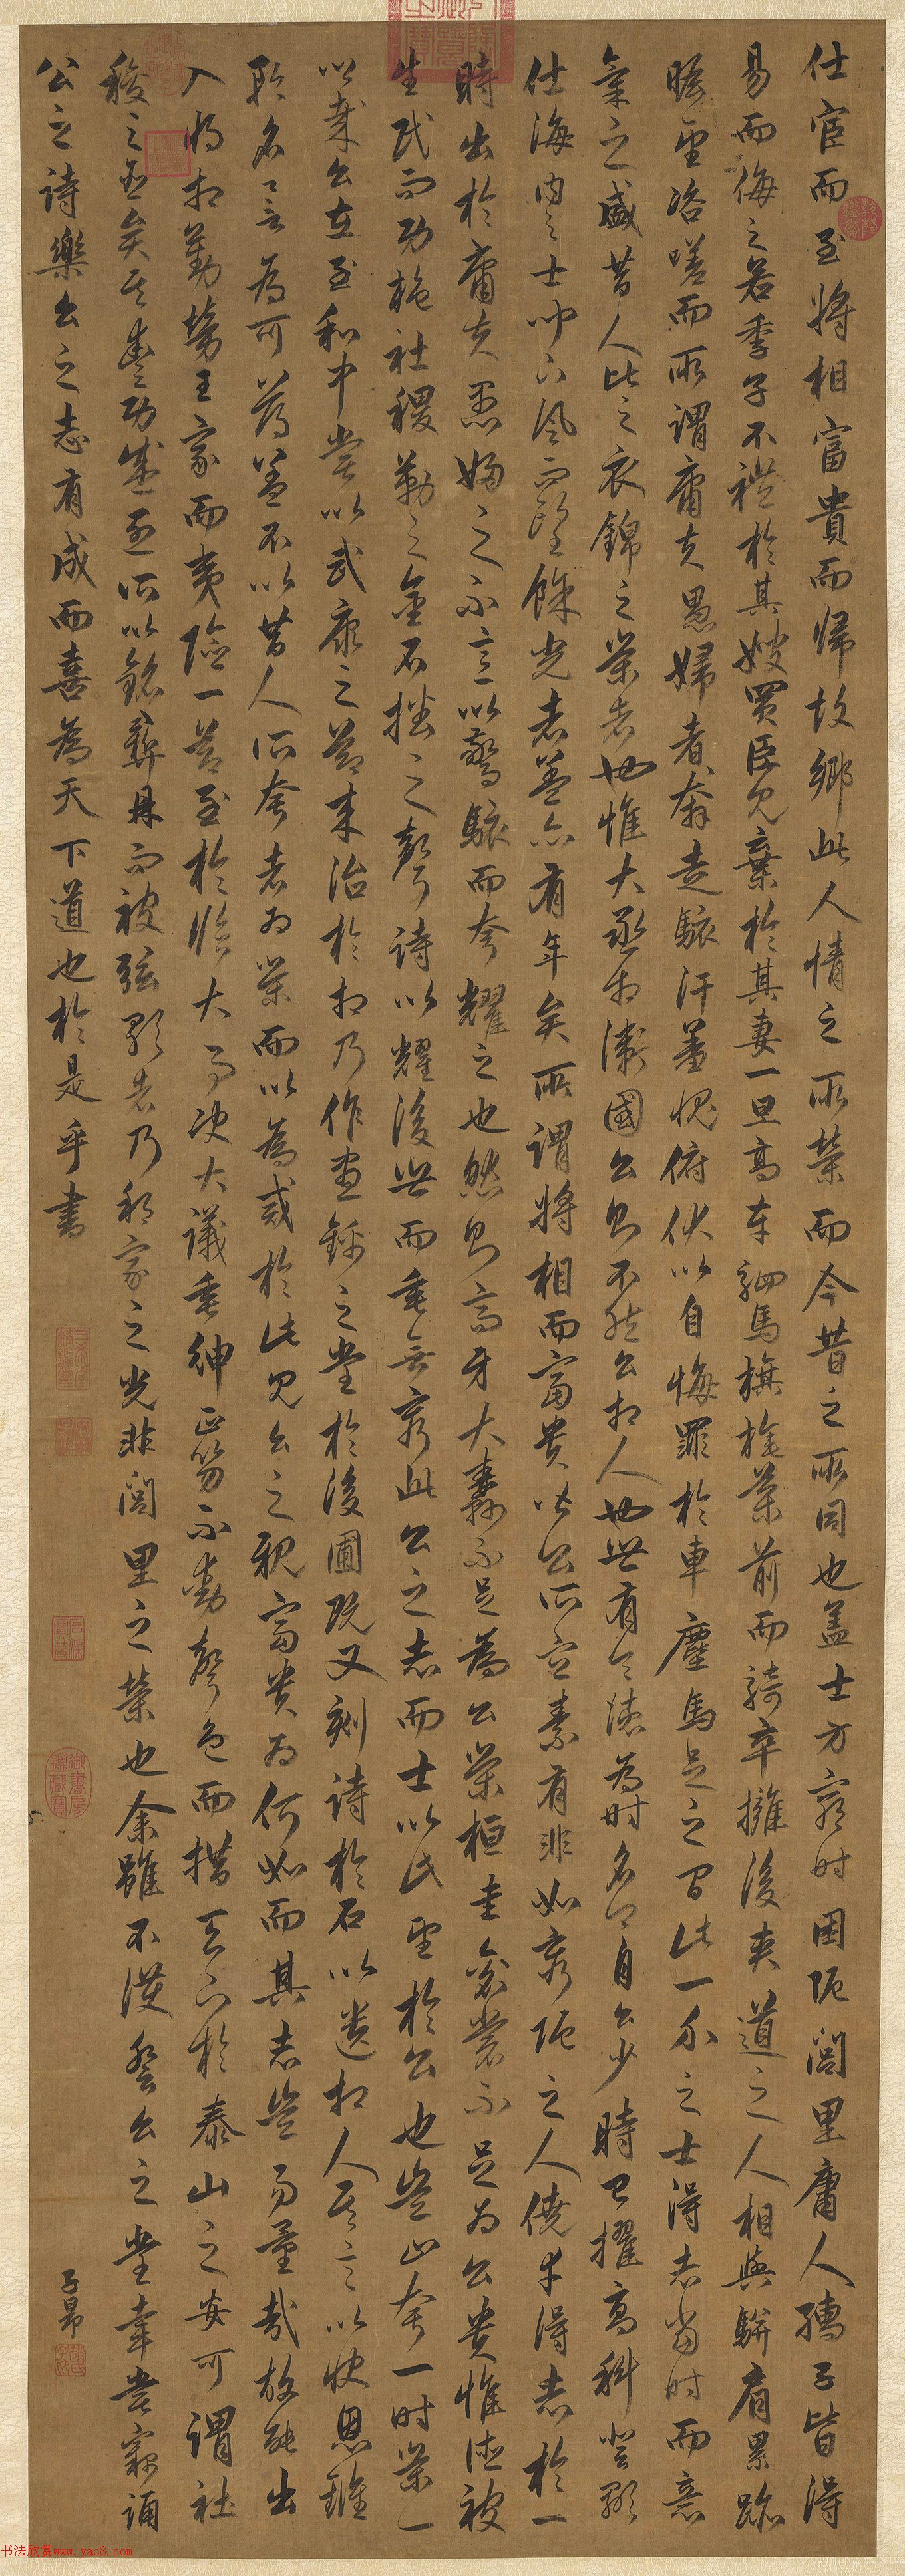 仕宦而至將相富貴而歸故鄉此人情之所榮而今昔之所同也蓋士方窮時困阨閭里庸人孺子皆得
易而侮之若季子不禮於其嫂買臣見棄於其妻一旦高車駟馬旗旄導前而騎卒擁後夾道之人相與駢肩累跡
瞻望咨嗟而所謂庸夫愚婦者奔走駭汗羞愧俯伏以自悔罪於車塵馬足之間此一介之士得志當時而意
氣之盛昔人比之衣錦之榮者也惟大丞相衛國公則不然公相人也世有令德為時名卿自公少時已擢高科登顯
仕海內之士聞下風而望餘光者蓋亦有年矣所謂將相而富貴皆公所宜素有非如窮阨之人僥倖得志於一
時出於庸夫愚婦之不意以驚駭而夸耀之也然則高牙大纛不足為公榮桓圭袞裳不足為公貴惟德被
生民而功施社稷勒之金石播之聲詩以耀後世而垂無窮此公之志而士以此望於公也豈止夸一時榮一
鄉哉公在至和中嘗以武康之節來治於相乃作晝錦之堂於後圃既又刻詩於石以遺相人其言以快恩讎
矜名譽為可薄蓋不以昔人所夸者為榮而以為戒於此見公之視富貴為何如而其志豈易量哉故能出
入將相勤勞王家而夷險一節至於臨大事決大議垂紳正笏不動聲色而措天下於泰山之安可謂社
稷之臣矣其豐功盛烈所以銘彝鼎而被弦歌者乃邦家之光非閭里之榮也余雖不獲登公之堂幸嘗竊誦
公之詩樂公之志有成而喜為天下道也於是乎書
子昂
书法欣赏www.yac8.com